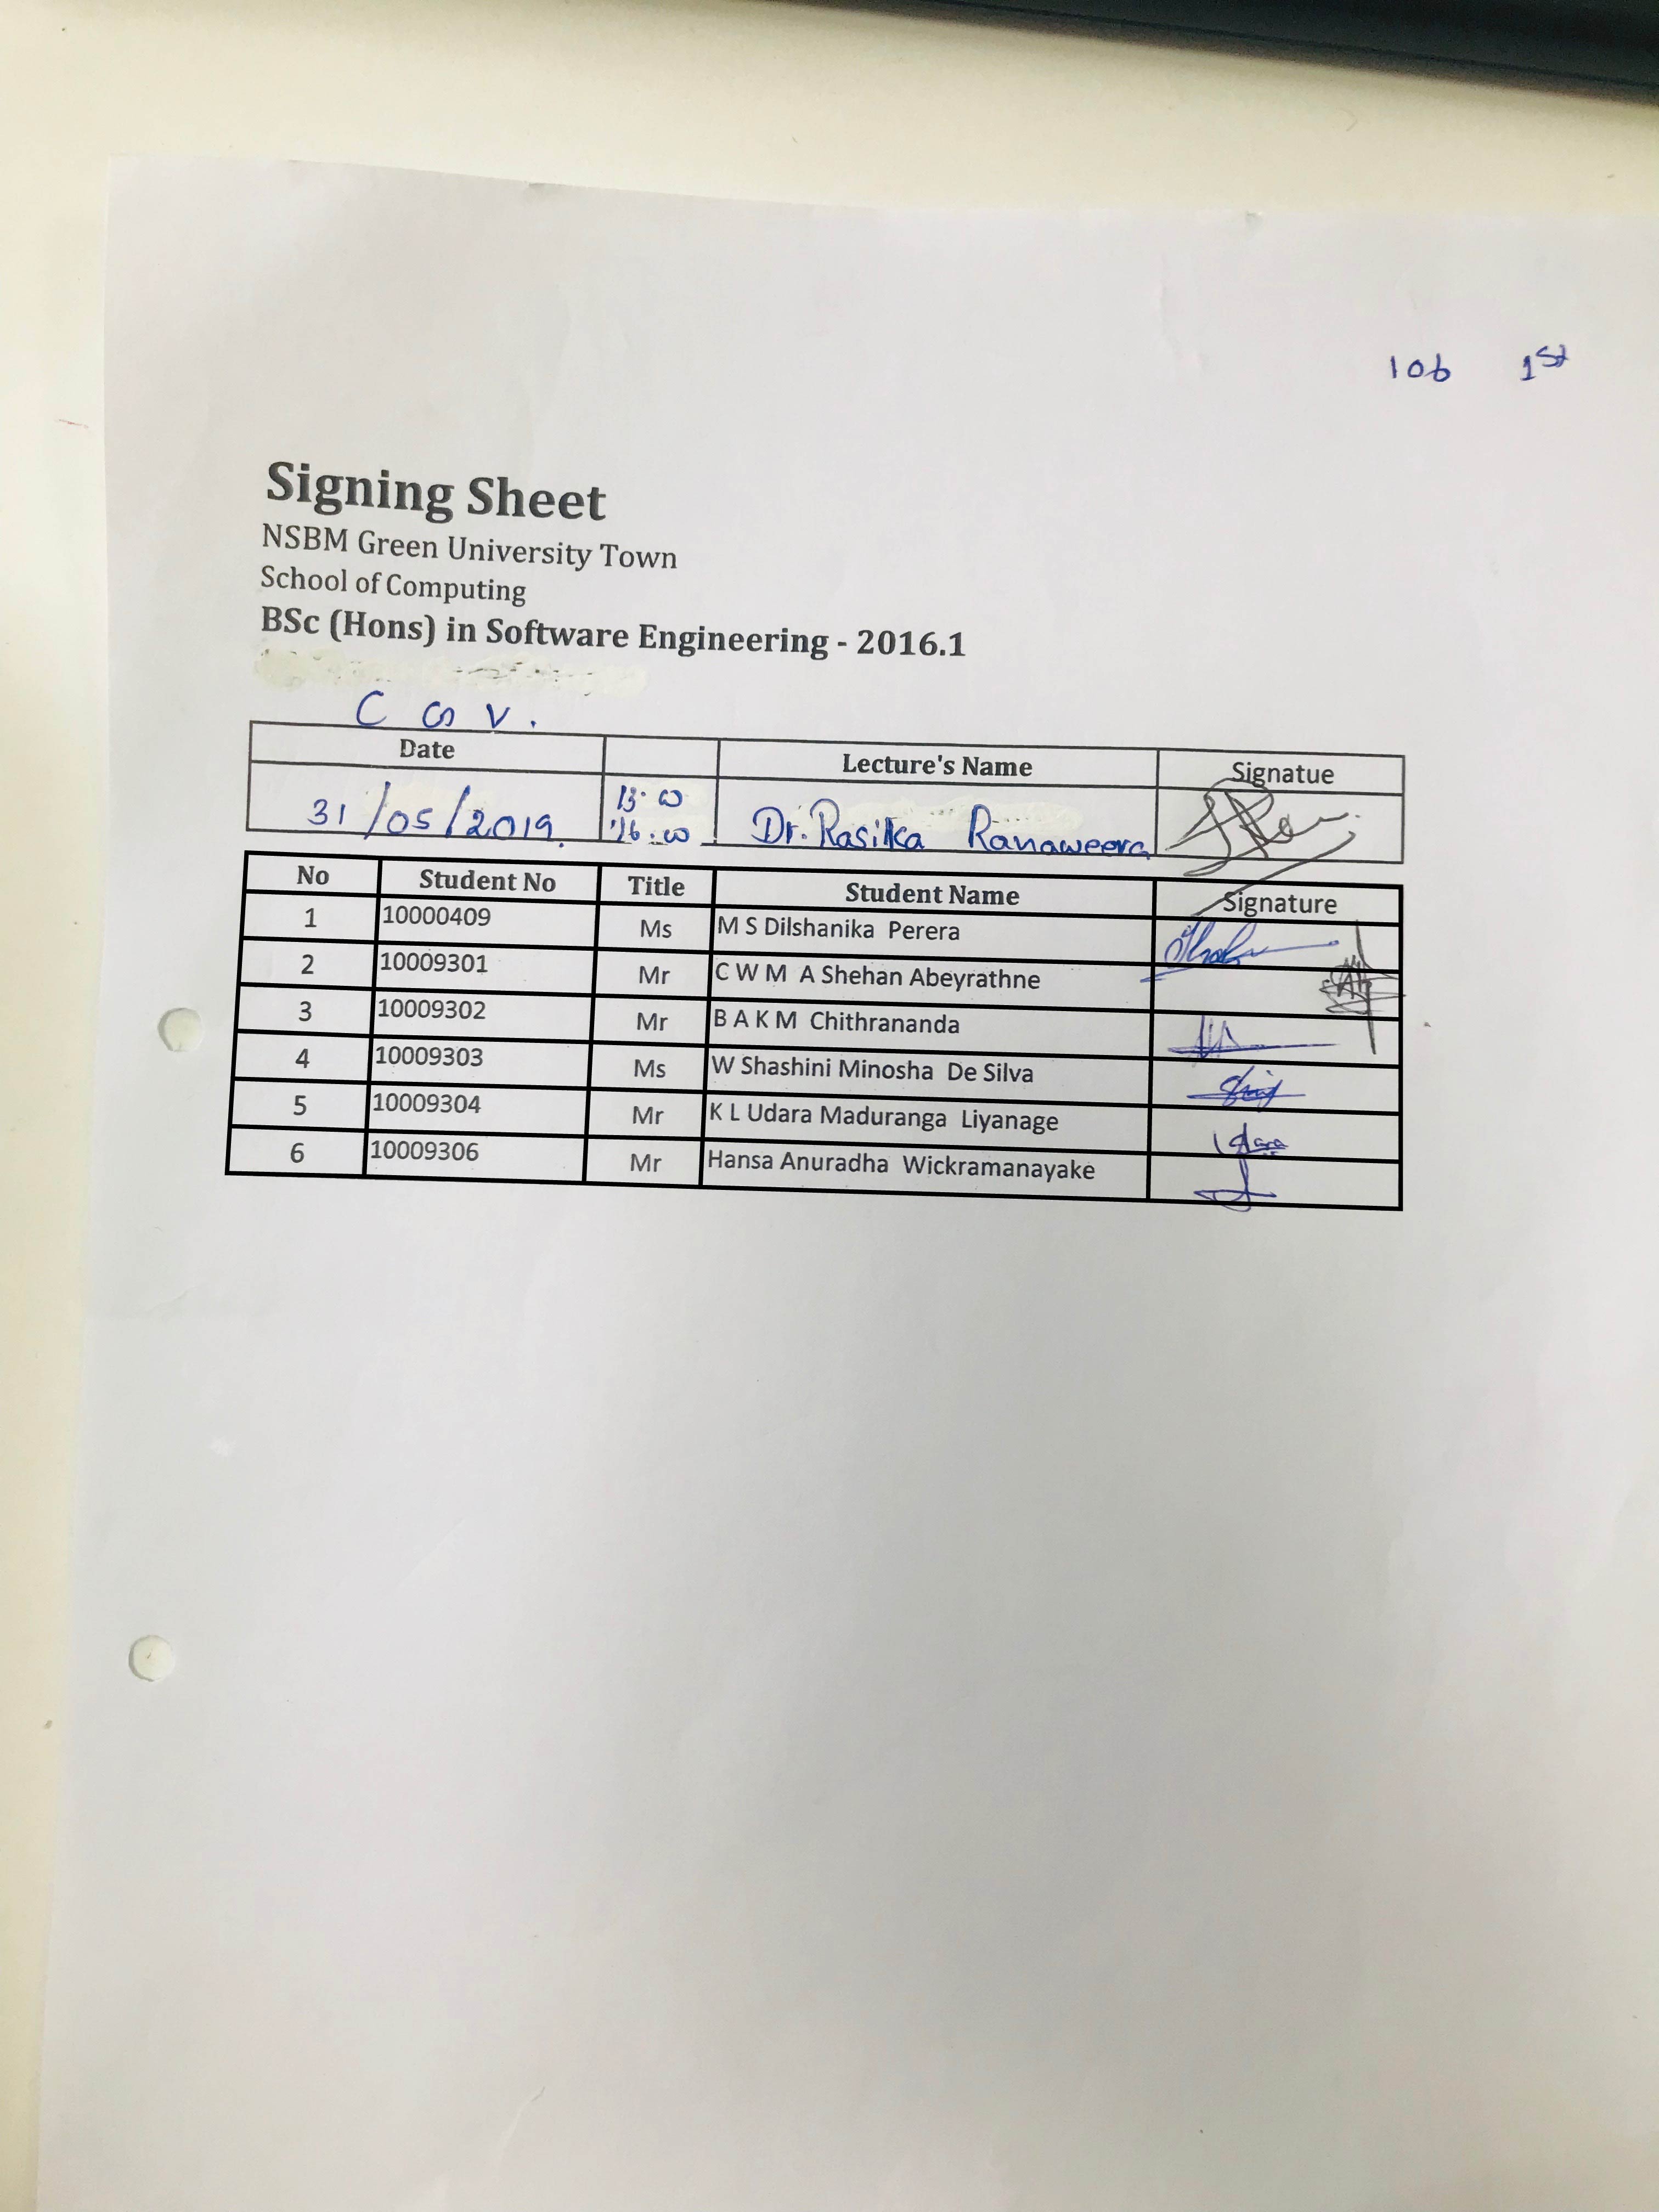 106 1st
Signing Sheet
NSBM Green University Town
School of Computing
BSc (Hons) in Software Engineering - 2016.1
Date Lecture's Name Signatue
31/05/2019. 16.00 Dr. Rasika Ranaweera
No Student No Title Student Name Signature
1 10000409 Ms M S Dilshanika Perera
2 10009301 Mr C W M A Shehan Abeyrathne
3 10009302 Mr B A K M Chithrananda
4 10009303 Ms W Shashini Minosha De Silva
5 10009304 Mr K L Udara Maduranga Liyanage
6 10009306 Mr Hansa Anuradha Wickramanayake